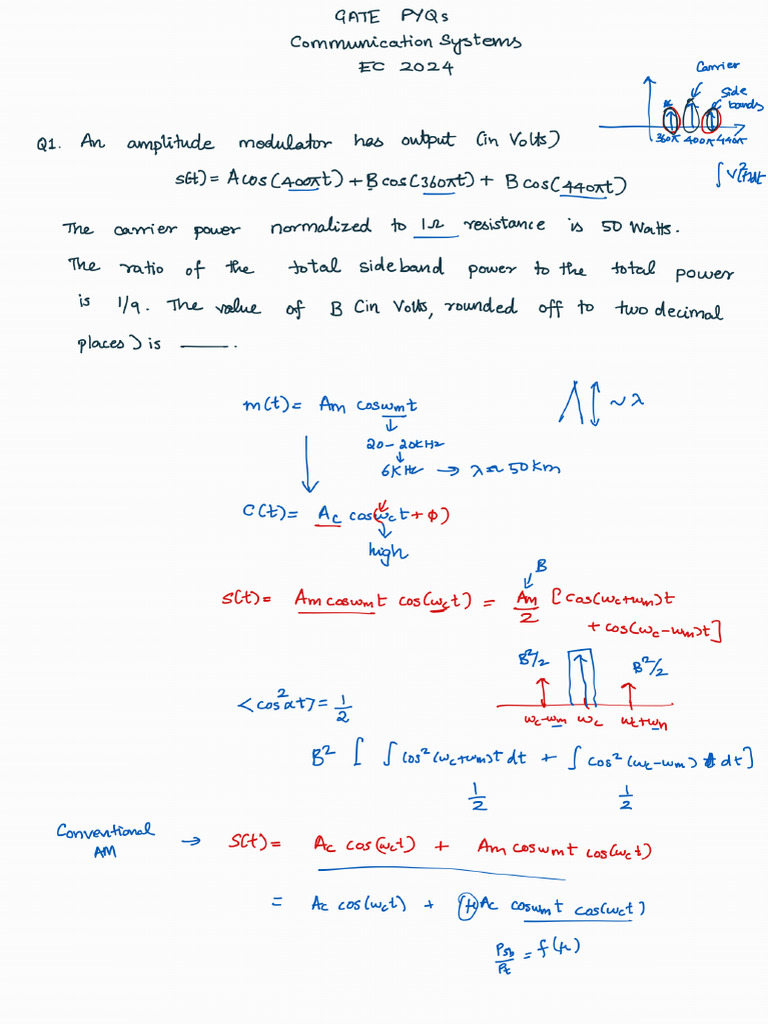 GATE PYQs
Communication Systems
EC 2024
Carrier
Side
bands
360π 400π 440π
∫ V²(t)dt
Q1. An amplitude modulator has output (in Volts)
s(t) = A cos(400πt) + B cos(360πt) + B cos(440πt)
The carrier power normalized to 1Ω resistance is 50 Watts.
The ratio of the total sideband power to the total power
is 1/9. The value of B (in Volts, rounded off to two decimal
places) is ____.
m(t) = Am cosωmt
20-20kHz
6KHz → λ ≈ 50km
~ λ
C(t) = Ac cos(ωct + φ)
high
B
S(t) = Am cosωmt cos(ωct) = Am/2 [cos(ωc+ωm)t
+ cos(ωc-ωm)t]
B²/2 B²/2
ωc-ωm ωc ωc+ωm
<cos²αt> = 1/2
B² [ ∫ cos²(ωc+ωm)t dt + ∫ cos²(ωc-ωm) t dt]
1/2 1/2
Conventional
AM → S(t) = Ac cos(ωct) + Am cosωmt cos(ωct)
= Ac cos(ωct) + (μ)Ac cosωmt cos(ωct)
Psb/Pt = f(μ)